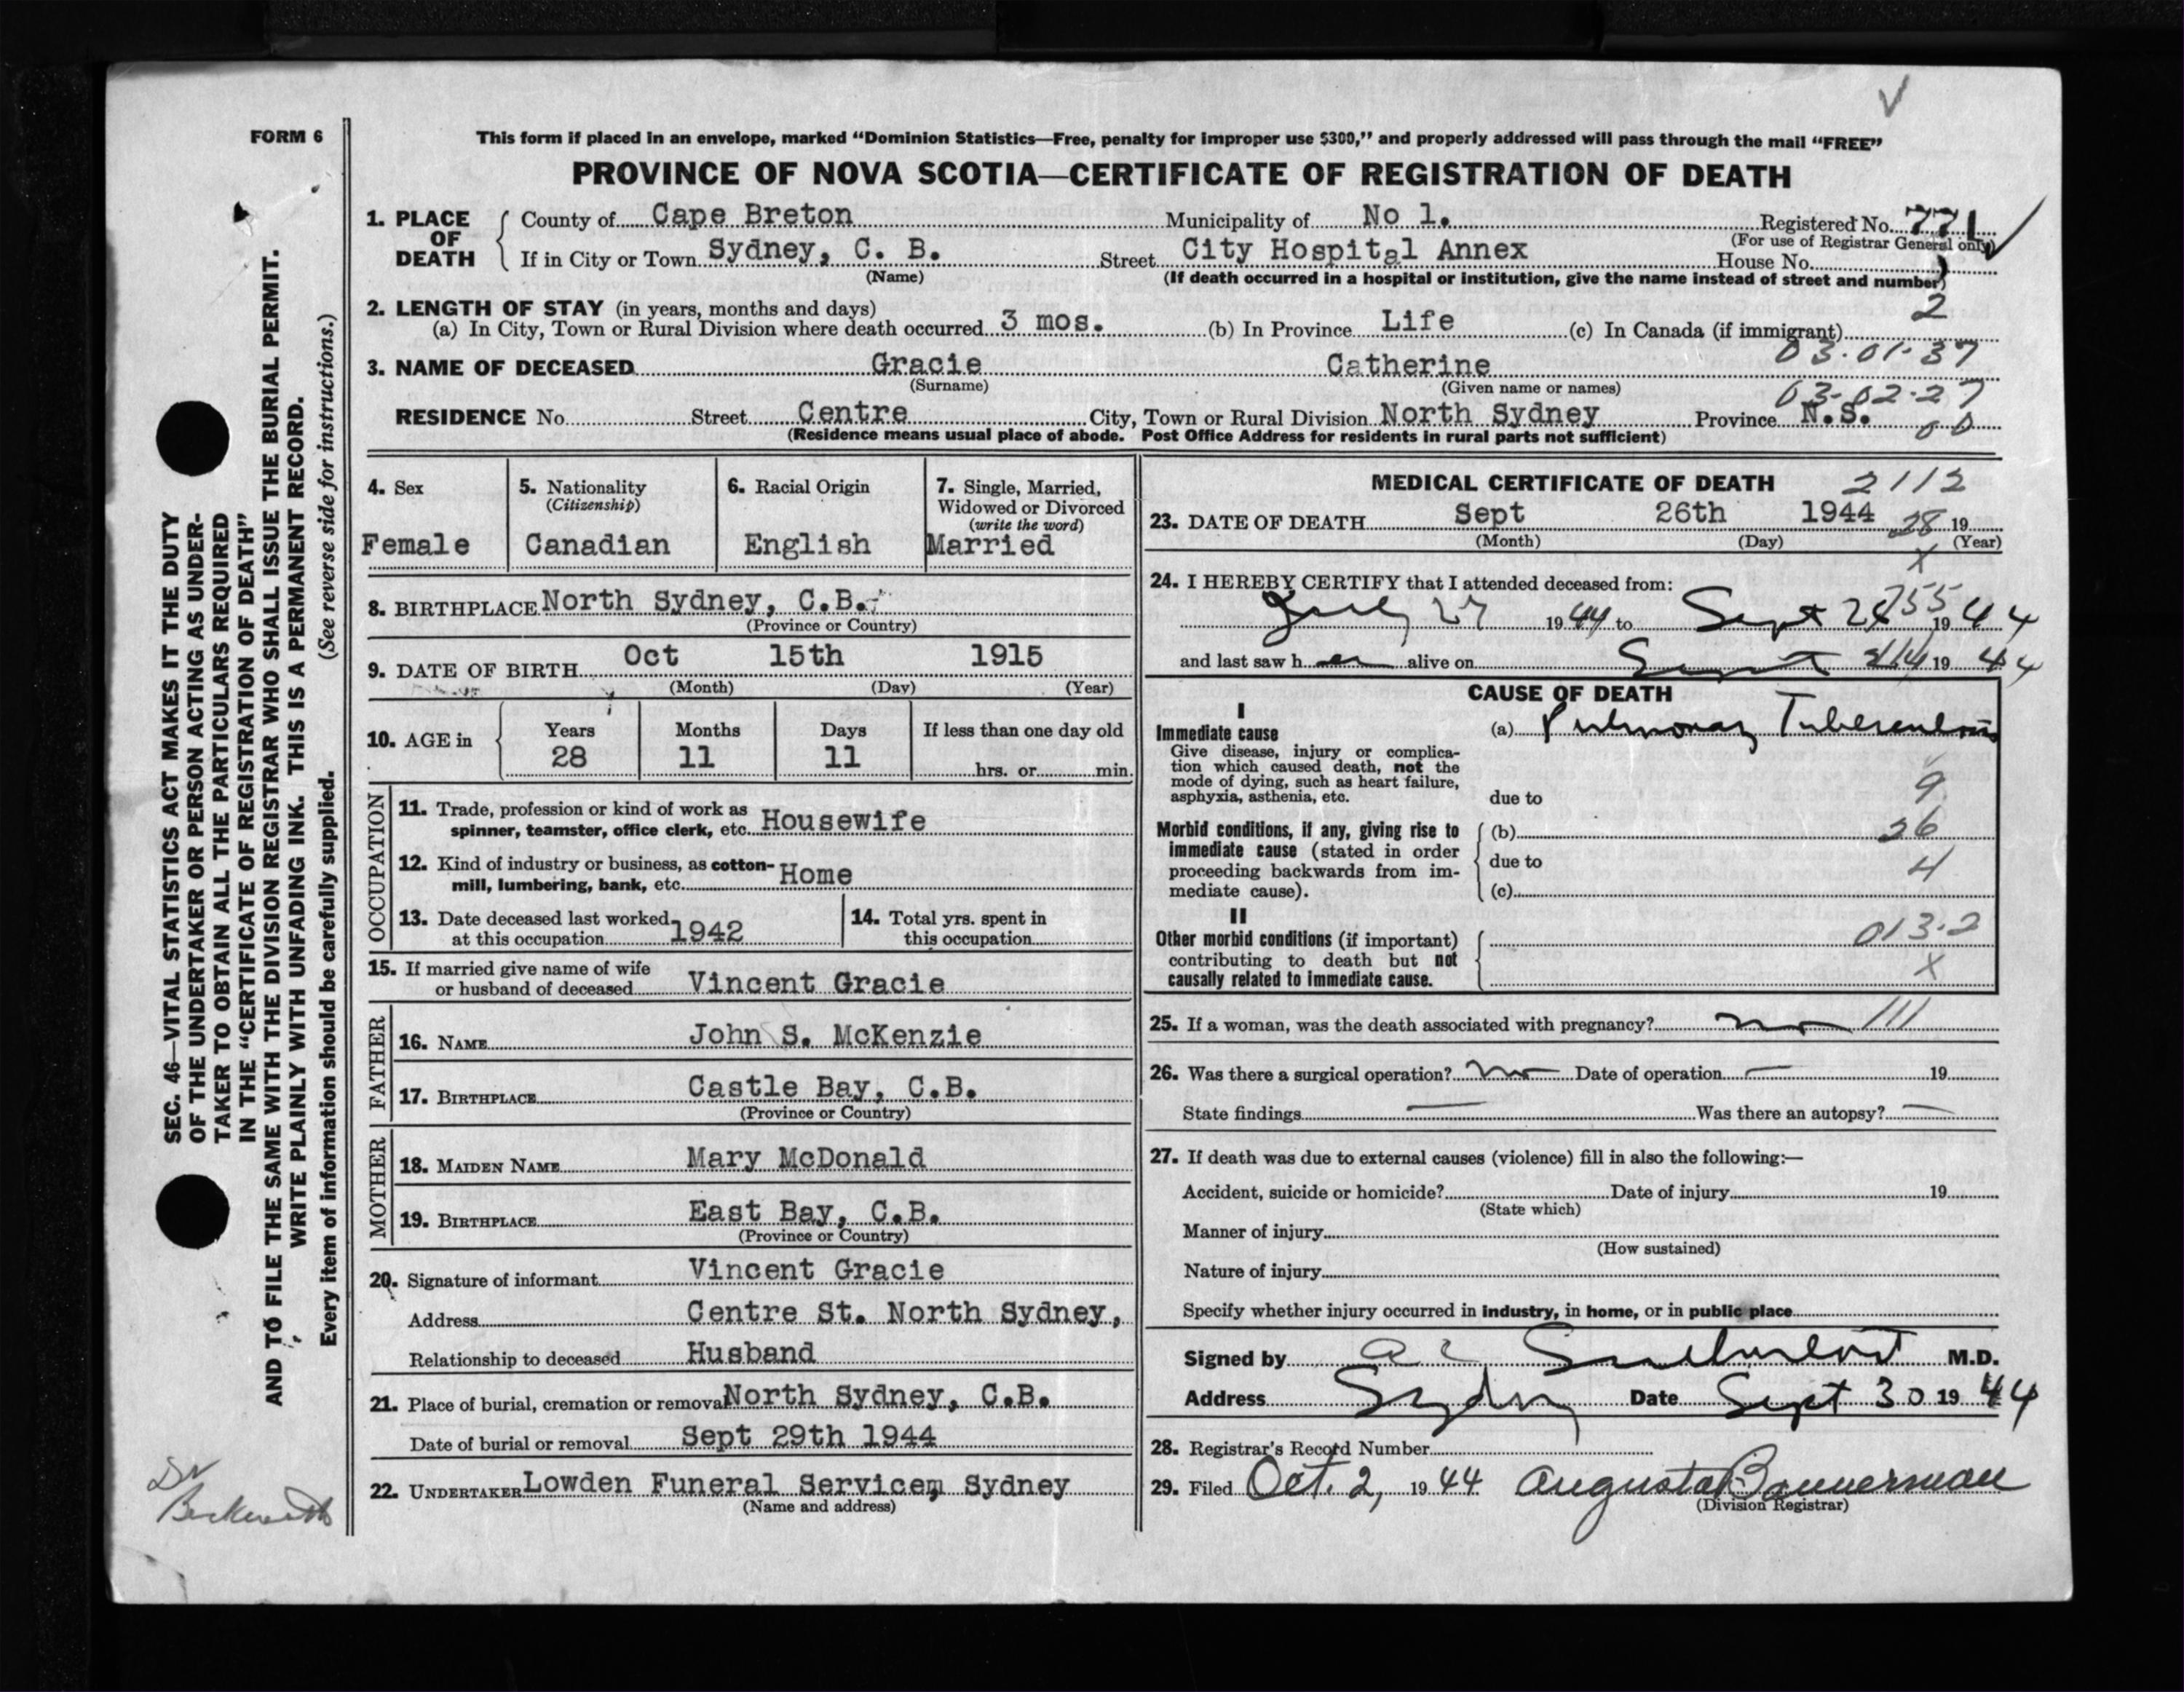 FORM 6
This form if placed in an envelope, marked “Dominion Statistics—Free, penalty for improper use $300,” and properly addressed will pass through the mail “FREE”
PROVINCE OF NOVA SCOTIA—CERTIFICATE OF REGISTRATION OF DEATH
1. PLACE OF DEATH
County of Cape Breton Municipality of No 1. Registered No. 771
(For use of Registrar General only)
If in City or Town Sydney, C. B. Street City Hospital Annex House No.
(Name) (If death occurred in a hospital or institution, give the name instead of street and number)
2. LENGTH OF STAY (in years, months and days) 2
(a) In City, Town or Rural Division where death occurred 3 mos. (b) In Province Life (c) In Canada (if immigrant)
03-01-37
3. NAME OF DECEASED Gracie Catherine
(Surname) (Given name or names) 03-02-27
RESIDENCE No. Street Centre City, Town or Rural Division North Sydney Province N.S. 00
(Residence means usual place of abode. Post Office Address for residents in rural parts not sufficient)
4. Sex
Female
5. Nationality
(Citizenship)
Canadian
6. Racial Origin
English
7. Single, Married,
Widowed or Divorced
(write the word)
Married
8. BIRTHPLACE North Sydney, C.B.
(Province or Country)
9. DATE OF BIRTH Oct 15th 1915
(Month) (Day) (Year)
10. AGE in
Years Months Days If less than one day old
28 11 11 hrs. or min.
OCCUPATION
11. Trade, profession or kind of work as
spinner, teamster, office clerk, etc. Housewife
12. Kind of industry or business, as cotton-
mill, lumbering, bank, etc. Home
13. Date deceased last worked
at this occupation 1942
14. Total yrs. spent in
this occupation
15. If married give name of wife
or husband of deceased Vincent Gracie
FATHER
16. NAME John S. McKenzie
17. BIRTHPLACE Castle Bay, C.B.
(Province or Country)
MOTHER
18. MAIDEN NAME Mary McDonald
19. BIRTHPLACE East Bay, C.B.
(Province or Country)
20. Signature of informant Vincent Gracie
Address Centre St. North Sydney,
Relationship to deceased Husband
21. Place of burial, cremation or removal North Sydney, C.B.
Date of burial or removal Sept 29th 1944
22. UNDERTAKER Lowden Funeral Service, Sydney
(Name and address)
MEDICAL CERTIFICATE OF DEATH 2112
23. DATE OF DEATH Sept 26th 1944 28 19
(Month) (Day) (Year)
X
24. I HEREBY CERTIFY that I attended deceased from:
July 27 1944 to Sept 1944
and last saw her alive on Sept 1944
CAUSE OF DEATH
I
Immediate cause (a) Pulmonary Tuberculosis
Give disease, injury or complica-
tion which caused death, not the
mode of dying, such as heart failure,
asphyxia, asthenia, etc. due to 9
Morbid conditions, if any, giving rise to (b) 26
immediate cause (stated in order
proceeding backwards from im- due to 4
mediate cause). (c)
II
Other morbid conditions (if important) 013.2
contributing to death but not
causally related to immediate cause. X
25. If a woman, was the death associated with pregnancy? no 111
26. Was there a surgical operation? no Date of operation — 19
State findings — Was there an autopsy? —
27. If death was due to external causes (violence) fill in also the following:—
Accident, suicide or homicide? Date of injury 19
(State which)
Manner of injury
(How sustained)
Nature of injury
Specify whether injury occurred in industry, in home, or in public place
Signed by M.D.
Address Sydney Date Sept 30 1944
28. Registrar's Record Number
29. Filed Oct. 2, 1944 Augusta Bannerman
(Division Registrar)
SEC. 46—VITAL STATISTICS ACT MAKES IT THE DUTY
OF THE UNDERTAKER OR PERSON ACTING AS UNDER-
TAKER TO OBTAIN ALL THE PARTICULARS REQUIRED
IN THE “CERTIFICATE OF REGISTRATION OF DEATH”
AND TO FILE THE SAME WITH THE DIVISION REGISTRAR WHO SHALL ISSUE THE BURIAL PERMIT.
WRITE PLAINLY WITH UNFADING INK. THIS IS A PERMANENT RECORD.
Every item of information should be carefully supplied. (See reverse side for instructions.)
Dr
Beckwith